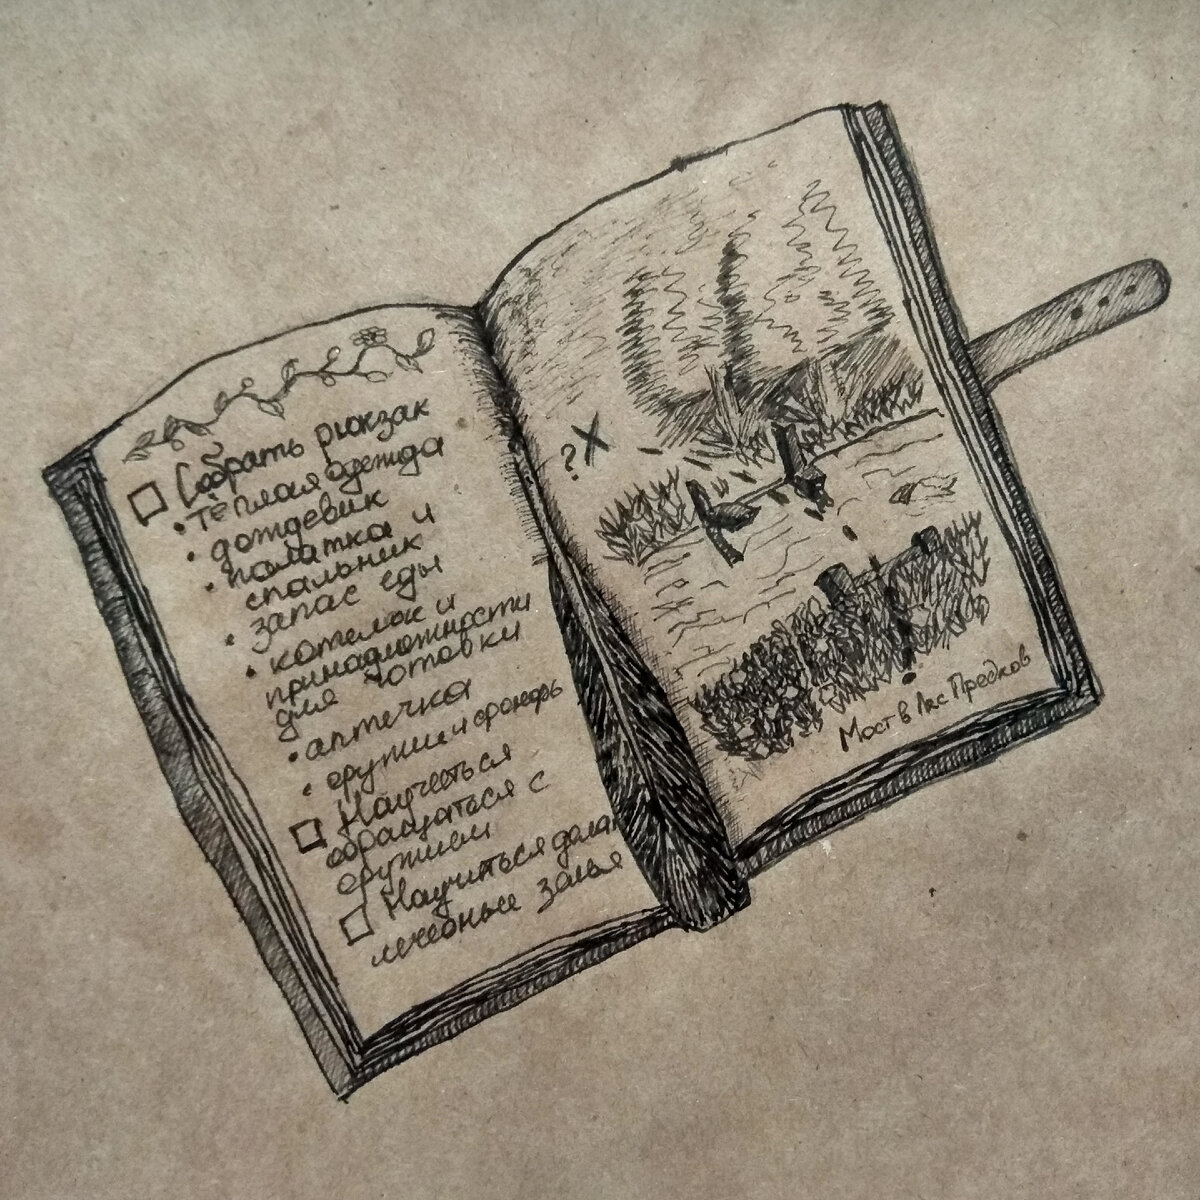 Собрать рюкзак
• тёплая одежда
• дождевик
• палатка и
спальник
• запас еды
• котелок и
принадложности
для готовки
• аптечка
• оружие и фонарь
Научиться
обращаться с
оружием
Научиться делать
лечебные зелья
?X
Мост в Лес Предков